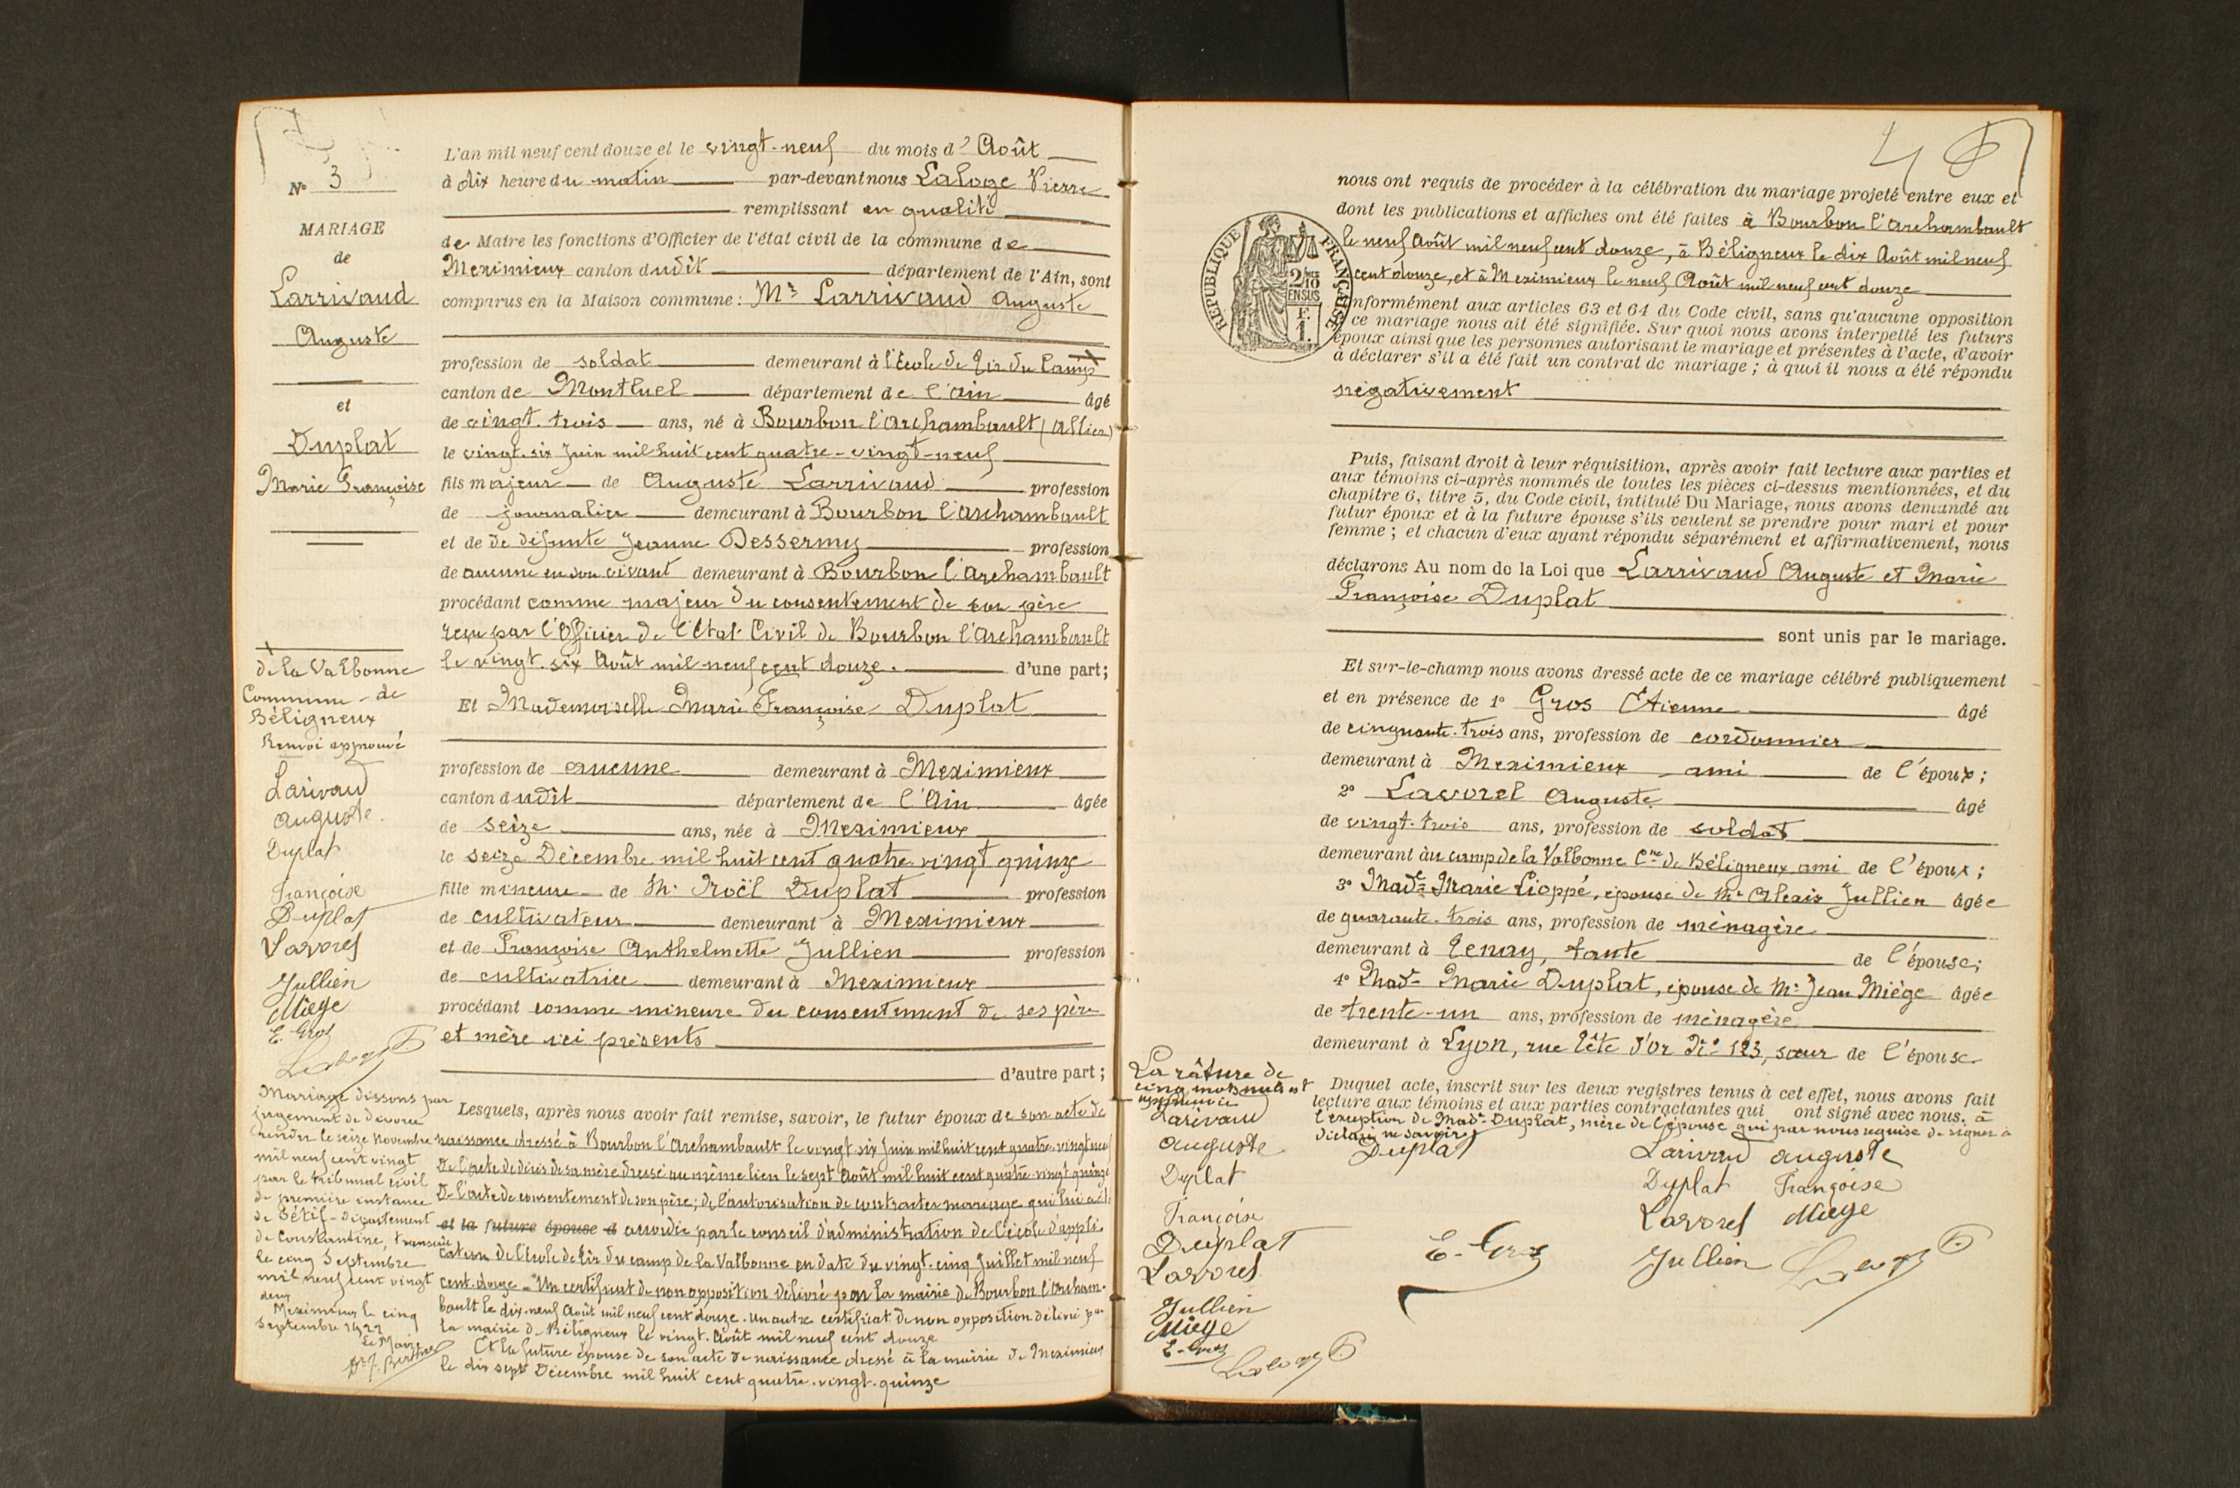 N° 3
MARIAGE
de
Larrivaud
Auguste
et
Duplat
Marie Françoise
L'an mil neuf cent douze et le vingt-neuf du mois d' Août
à dix heure du matin par-devant nous Laloge Pierre
remplissant en qualité
de Maire les fonctions d'Officier de l'état civil de la commune de
Meximieux canton dudit département de l'Ain, sont
comparus en la Maison commune : Mr Larrivaud Auguste
profession de soldat demeurant à l'Ecole de Tir du Camp
canton de Montluel département de l'Ain âgé
de vingt-trois ans, né à Bourbon l'Archambault (Allier)
le vingt-six Juin mil huit cent quatre-vingt-neuf
fils majeur de Auguste Larrivaud profession
de journalier demeurant à Bourbon l'Archambault
et de de défunte Jeanne Dessermy profession
de aucune en son vivant demeurant à Bourbon l'Archambault
procédant comme majeur du consentement de son père
reçu par l'Officier de l'Etat Civil de Bourbon l'Archambault
le vingt-six Août mil neuf cent douze. d'une part ;
Et Mademoiselle Marie Françoise Duplat
profession de aucune demeurant à Meximieux
canton dudit département de l'Ain âgée
de seize ans, née à Meximieux
le seize Décembre mil huit cent quatre vingt quinze
fille mineure de Mr Noël Duplat profession
de cultivateur demeurant à Meximieux
et de Françoise Anthelmette Jullien profession
de cultivatrice demeurant à Meximieux
procédant comme mineure du consentement de ses père
et mère ici présents
d'autre part ;
Lesquels, après nous avoir fait remise, savoir, le futur époux de son acte de
naissance dressé à Bourbon l'Archambault le vingt six Juin mil huit cent quatre-vingt neuf
De l'acte de décès de sa mère dressé au même lieu le sept Août mil huit cent quatre-vingt quinze
De l'acte de consentement de son père ; de l'autorisation de contracter mariage qui lui a été
et la future épouse d accordée par le conseil d'administration de l'école d'appli-
cation de l'école de tir du camp de la Valbonne en date du vingt-cinq Juillet mil neuf
cent-douze - Un certificat de non opposition délivré par la mairie de Bourbon l'Archam-
bault le dix-neuf Août mil neuf cent douze. Un autre certificat de non opposition délivré par
la mairie de Béligneux le vingt Août mil neuf cent douze
Et la future épouse de son acte de naissance dressé à la mairie de Meximieux
le dix sept Décembre mil huit cent quatre-vingt-quinze
de la Valbonne
Commune de
Béligneux
Renvoi approuvé
Larivaud
auguste
Duplat
Françoise
Duplat
Lavorel
Jullien
Miège
E. Gros
Mariage dissous par
jugement de divorce
rendu le seize Novembre
mil neuf cent vingt
par le tribunal civil
de première instance
de Sétif - département
de Constantine, transcrit
le cinq Septembre
mil neuf cent vingt
deux
Meximieux le cinq
Septembre 1922
Le Maire
nous ont requis de procéder à la célébration du mariage projeté entre eux et
dont les publications et affiches ont été faites à Bourbon l'Archambault
le neuf Août mil neuf cent douze, à Béligneux le dix Août mil neuf
cent douze, et à Meximieux le neuf Août mil neuf cent douze
REPUBLIQUE FRANÇAISE
2/10
EN SUS
1 F.
nformément aux articles 63 et 64 du Code civil, sans qu'aucune opposition
ce mariage nous ait été signifiée. Sur quoi nous avons interpellé les futurs
époux ainsi que les personnes autorisant le mariage et présentes à l'acte, d'avoir
à déclarer s'il a été fait un contrat de mariage ; à quoi il nous a été répondu
négativement
Puis, faisant droit à leur réquisition, après avoir fait lecture aux parties et
aux témoins ci-après nommés de toutes les pièces ci-dessus mentionnées, et du
chapitre 6, titre 5, du Code civil, intitulé Du Mariage, nous avons demandé au
futur époux et à la future épouse s'ils veulent se prendre pour mari et pour
femme ; et chacun d'eux ayant répondu séparément et affirmativement, nous
déclarons Au nom de la Loi que Larrivaud Auguste et Marie
Françoise Duplat
sont unis par le mariage.
Et sur-le-champ nous avons dressé acte de ce mariage célébré publiquement
et en présence de 1° Gros Etienne âgé
de cinquante-trois ans, profession de cordonnier
demeurant à Meximieux ami de l'époux ;
2° Lavorel Auguste âgé
de vingt-trois ans, profession de soldat
demeurant àu camp de la Valbonne Cne de Béligneux ami de l'époux ;
3° Made Marie Lioppé, épouse de Mr Alexis Jullien âgée
de quarante-trois ans, profession de ménagère
demeurant à Tenay, tante de l'épouse ;
4° Made Marie Duplat, épouse de Mr Jean Miège âgée
de trente-un ans, profession de ménagère
demeurant à Lyon, rue Tête d'Or N° 123, sœur de l'épouse
Duquel acte, inscrit sur les deux registres tenus à cet effet, nous avons fait
lecture aux témoins et aux parties contractantes qui ont signé avec nous, à
l'exception de Made Duplat, mère de l'épouse qui par nous requise de signer a
déclaré ne savoir
Duplat
Larivaud auguste
Duplat Françoise
Lavorel Miège
E. Gros
Jullien
La râture de
cinq mots nuls est
approuvée
Larivaud
auguste
Duplat
Françoise
Duplat
Lavorel
Jullien
Miège
E. Gros